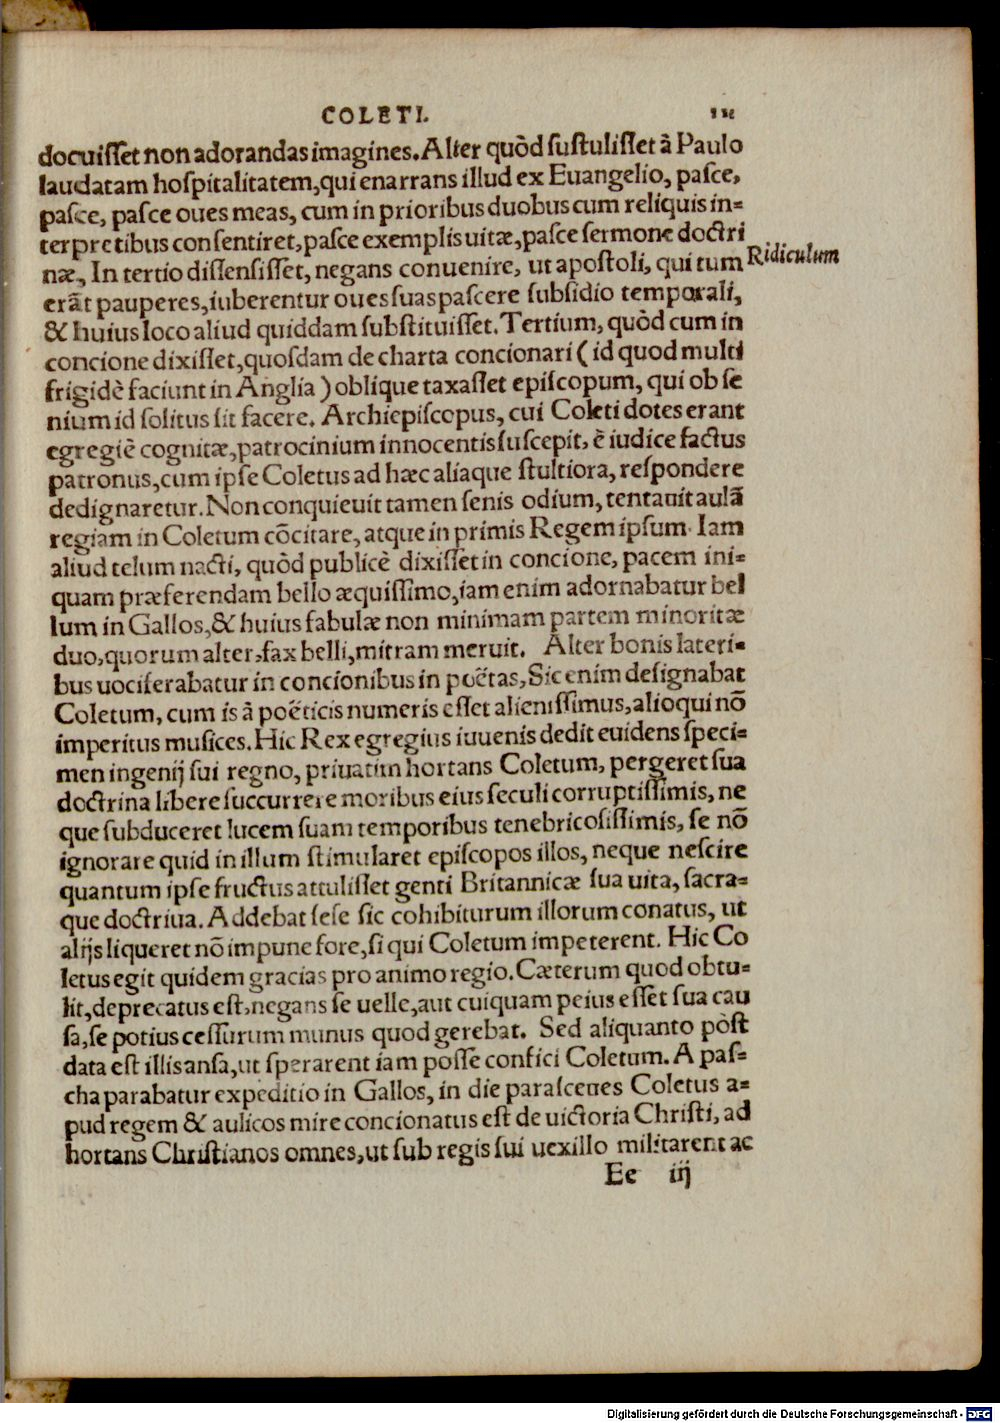 COLETI.
docuiſſet non adorandas imagines. Alter quòd ſuſtuliſſet à Paulo
laudatam hoſpitalitatem, qui enarrans illud ex Euangelio, paſce,
paſce, paſce oues meas, cum in prioribus duobus cum reliquis in=
terpretibus conſentiret, paſce exemplis uitæ, paſce ſermone doctri
næ, In tertio diſſenſiſſet, negans conuenire, ut apoſtoli, qui tum
Ridiculum
erãt pauperes, iuberentur oues ſuas paſcere ſubſidio temporali,
& huius loco aliud quiddam ſubſtituiſſet. Tertium, quòd cum in
concione dixiſſet, quoſdam de charta concionari ( id quod multi
frigidè faciunt in Anglia ) oblique taxaſſet epiſcopum, qui ob ſe
nium id ſolitus ſit facere. Archiepiſcopus, cui Coleti dotes erant
egregiè cognitæ, patrocinium innocentis ſuſcepit, è iudice factus
patronus, cum ipſe Coletus ad hæc aliaque ſtultiora, reſpondere
dedignaretur. Non conquieuit tamen ſenis odium, tentauit aulã
regiam in Coletum cõcitare, atque in primis Regem ipſum. Iam
aliud telum nacti, quòd publicè dixiſſet in concione, pacem ini=
quam præferendam bello æquiſſimo, iam enim adornabatur bel
lum in Gallos, & huius fabulæ non minimam partem minoritæ
duo, quorum alter, fax belli, mitram meruit. Alter bonis lateri=
bus uociferabatur in concionibus in poëtas, Sic enim deſignabat
Coletum, cum is à poëticis numeris eſſet alieniſſimus, alioqui nõ
imperitus muſices. Hic Rex egregius iuuenis dedit euidens ſpeci=
men ingenij ſui regno, priuatim hortans Coletum, pergeret ſua
doctrina libere ſuccurrere moribus eius ſeculi corruptiſſimis, ne
que ſubduceret lucem ſuam temporibus tenebricoſiſſimis, ſe nõ
ignorare quid in illum ſtimularet epiſcopos illos, neque neſcire
quantum ipſe fructus attuliſſet genti Britannicæ ſua uita, ſacra=
que doctriua. Addebat ſeſe ſic cohibiturum illorum conatus, ut
alijs liqueret nõ impune fore, ſi qui Coletum impeterent. Hic Co
letus egit quidem gracias pro animo regio. Cæterum quod obtu=
lit, deprecatus eſt, negans ſe uelle, aut cuiquam peius eſſet ſua cau
ſa, ſe potius ceſſurum munus quod gerebat. Sed aliquanto pòſt
data eſt illis anſa, ut ſperarent iam poſſe confici Coletum. A paſ=
cha parabatur expeditio in Gallos, in die paraſceues Coletus a=
pud regem & aulicos mire concionatus eſt de uictoria Chriſti, ad
hortans Chriſtianos omnes, ut ſub regis ſui uexillo militarent ac
Ee iij
Digitalisierung gefördert durch die Deutsche Forschungsgemeinschaft - DFG